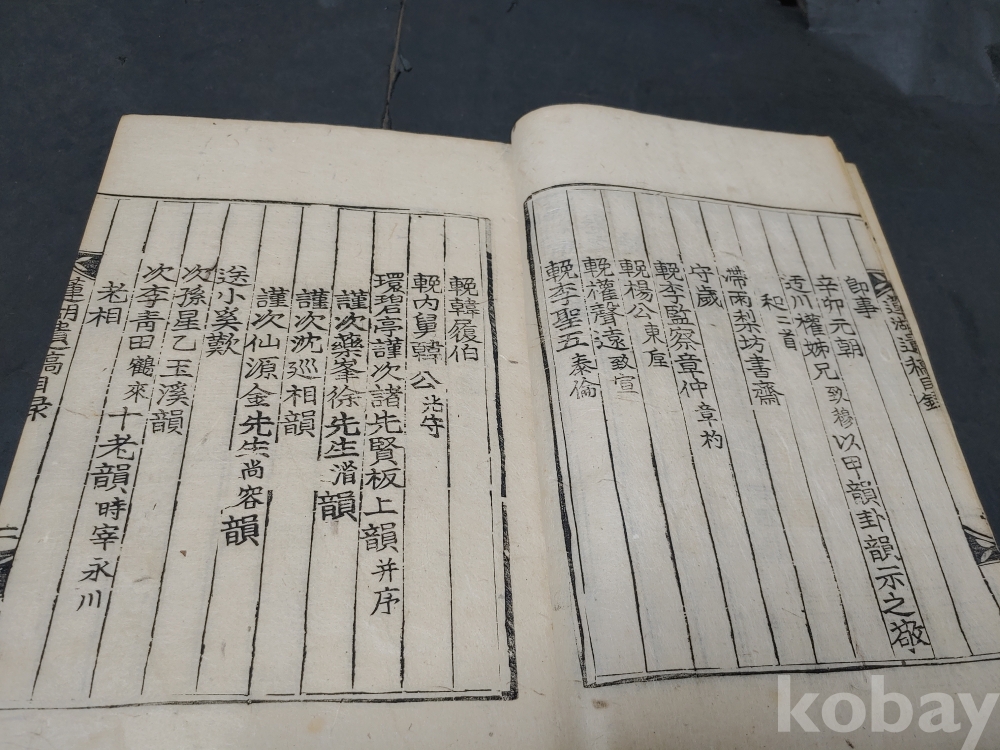 蓮湖遺稿目錄
卽事
辛卯元朝
近川權姊兄致穆以甲韻卦韻示之敬
和二首
帶雨梨坊書齋
守歲
輓李監察章仲章杓
輓楊公東垕
輓權聲遠致宣
輓李聖五泰倫
輓韓履伯
輓內舅韓公光守
環碧亭謹次諸先賢板上韻并序
謹次藥峯徐先生渻韻
謹次沈巡相韻
謹次仙源金先生尚容韻
送小奚歎
次孫星乙玉溪韻
次李青田鶴來十老韻時宰永川
老相
蓮湖遺稿目录
kobay